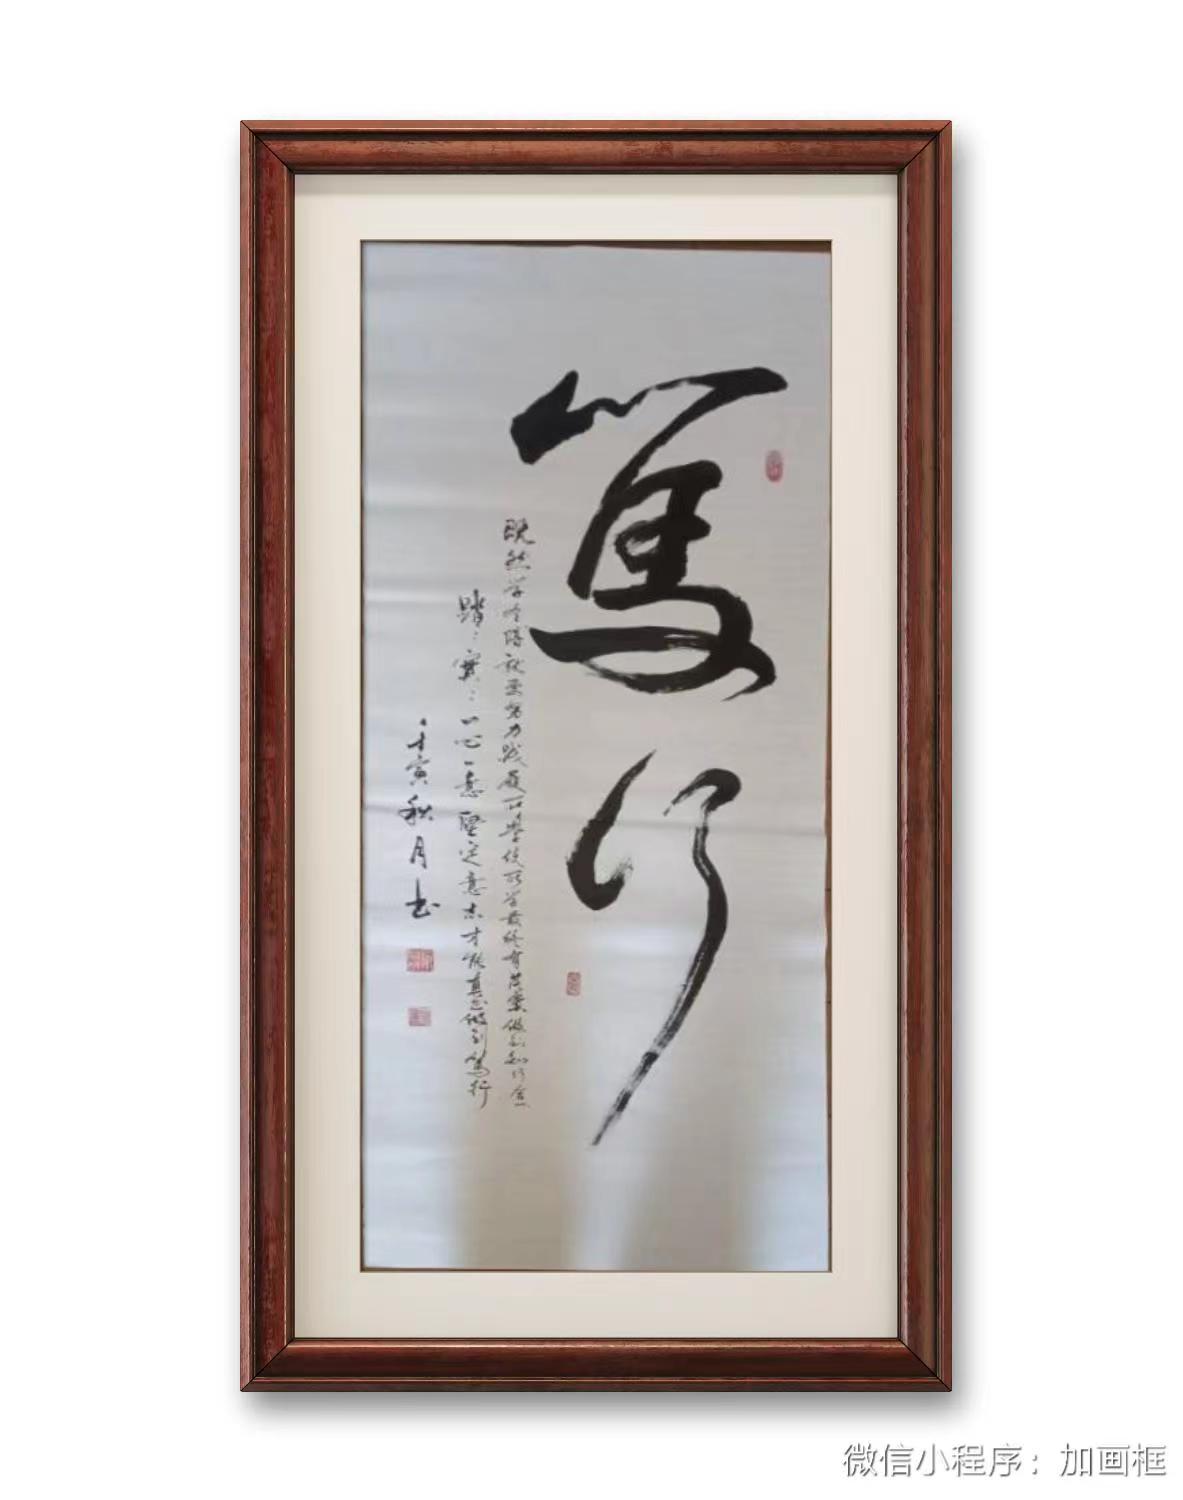 篤行
既然学得就要努力践履所學使所学最终有落實做到知行合一
踏〻實〻一心一意堅定意志才能真正做到篤行
壬寅秋月书
微信小程序：加画框